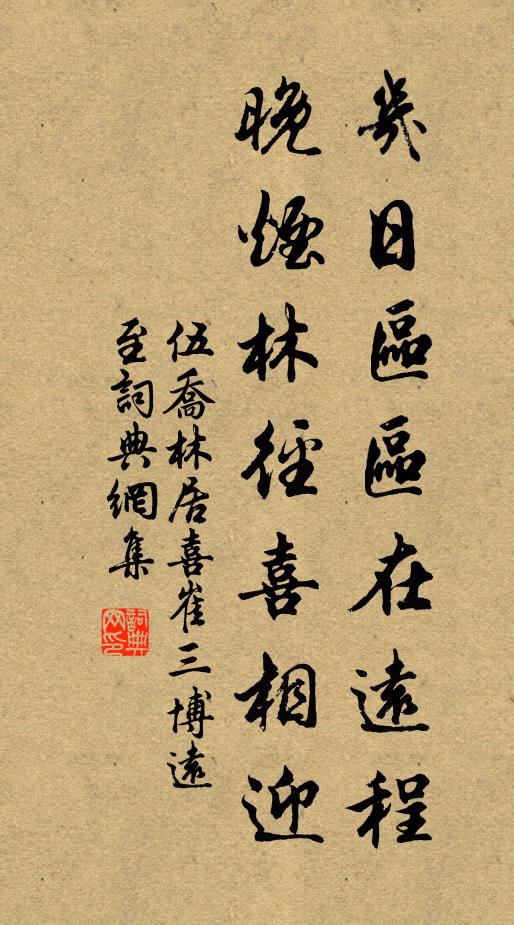 幾日區區在遠程
晚煙林徑喜相迎
伍喬林居喜崔三博遠
至詞典網集
詞典網印